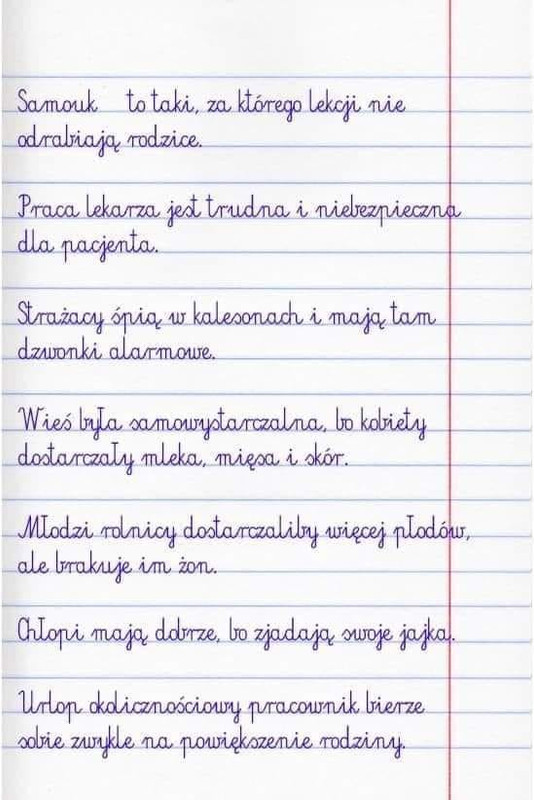 Samouk to taki, za którego lekcji nie
odrabiają rodzice.
Praca lekarza jest trudna i niebezpieczna
dla pacjenta.
Strażacy śpią w kalesonach i mają tam
dzwonki alarmowe.
Wieś była samowystarczalna, bo kobiety
dostarczały mleka, mięsa i skór.
Młodzi rolnicy dostarczaliby więcej płodów,
ale brakuje im żon.
Chłopi mają dobrze, bo zjadają swoje jajka.
Urlop okolicznościowy pracownik bierze
sobie zwykle na powiększenie rodziny.